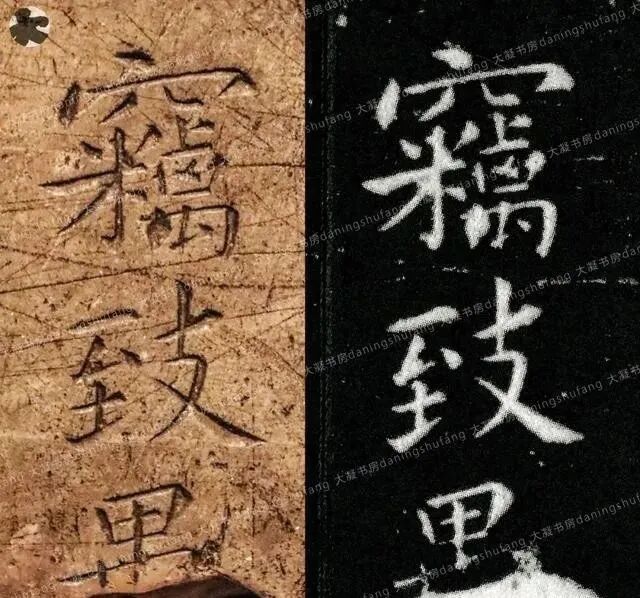 竊致里
竊致里
大凝书房daningshufang